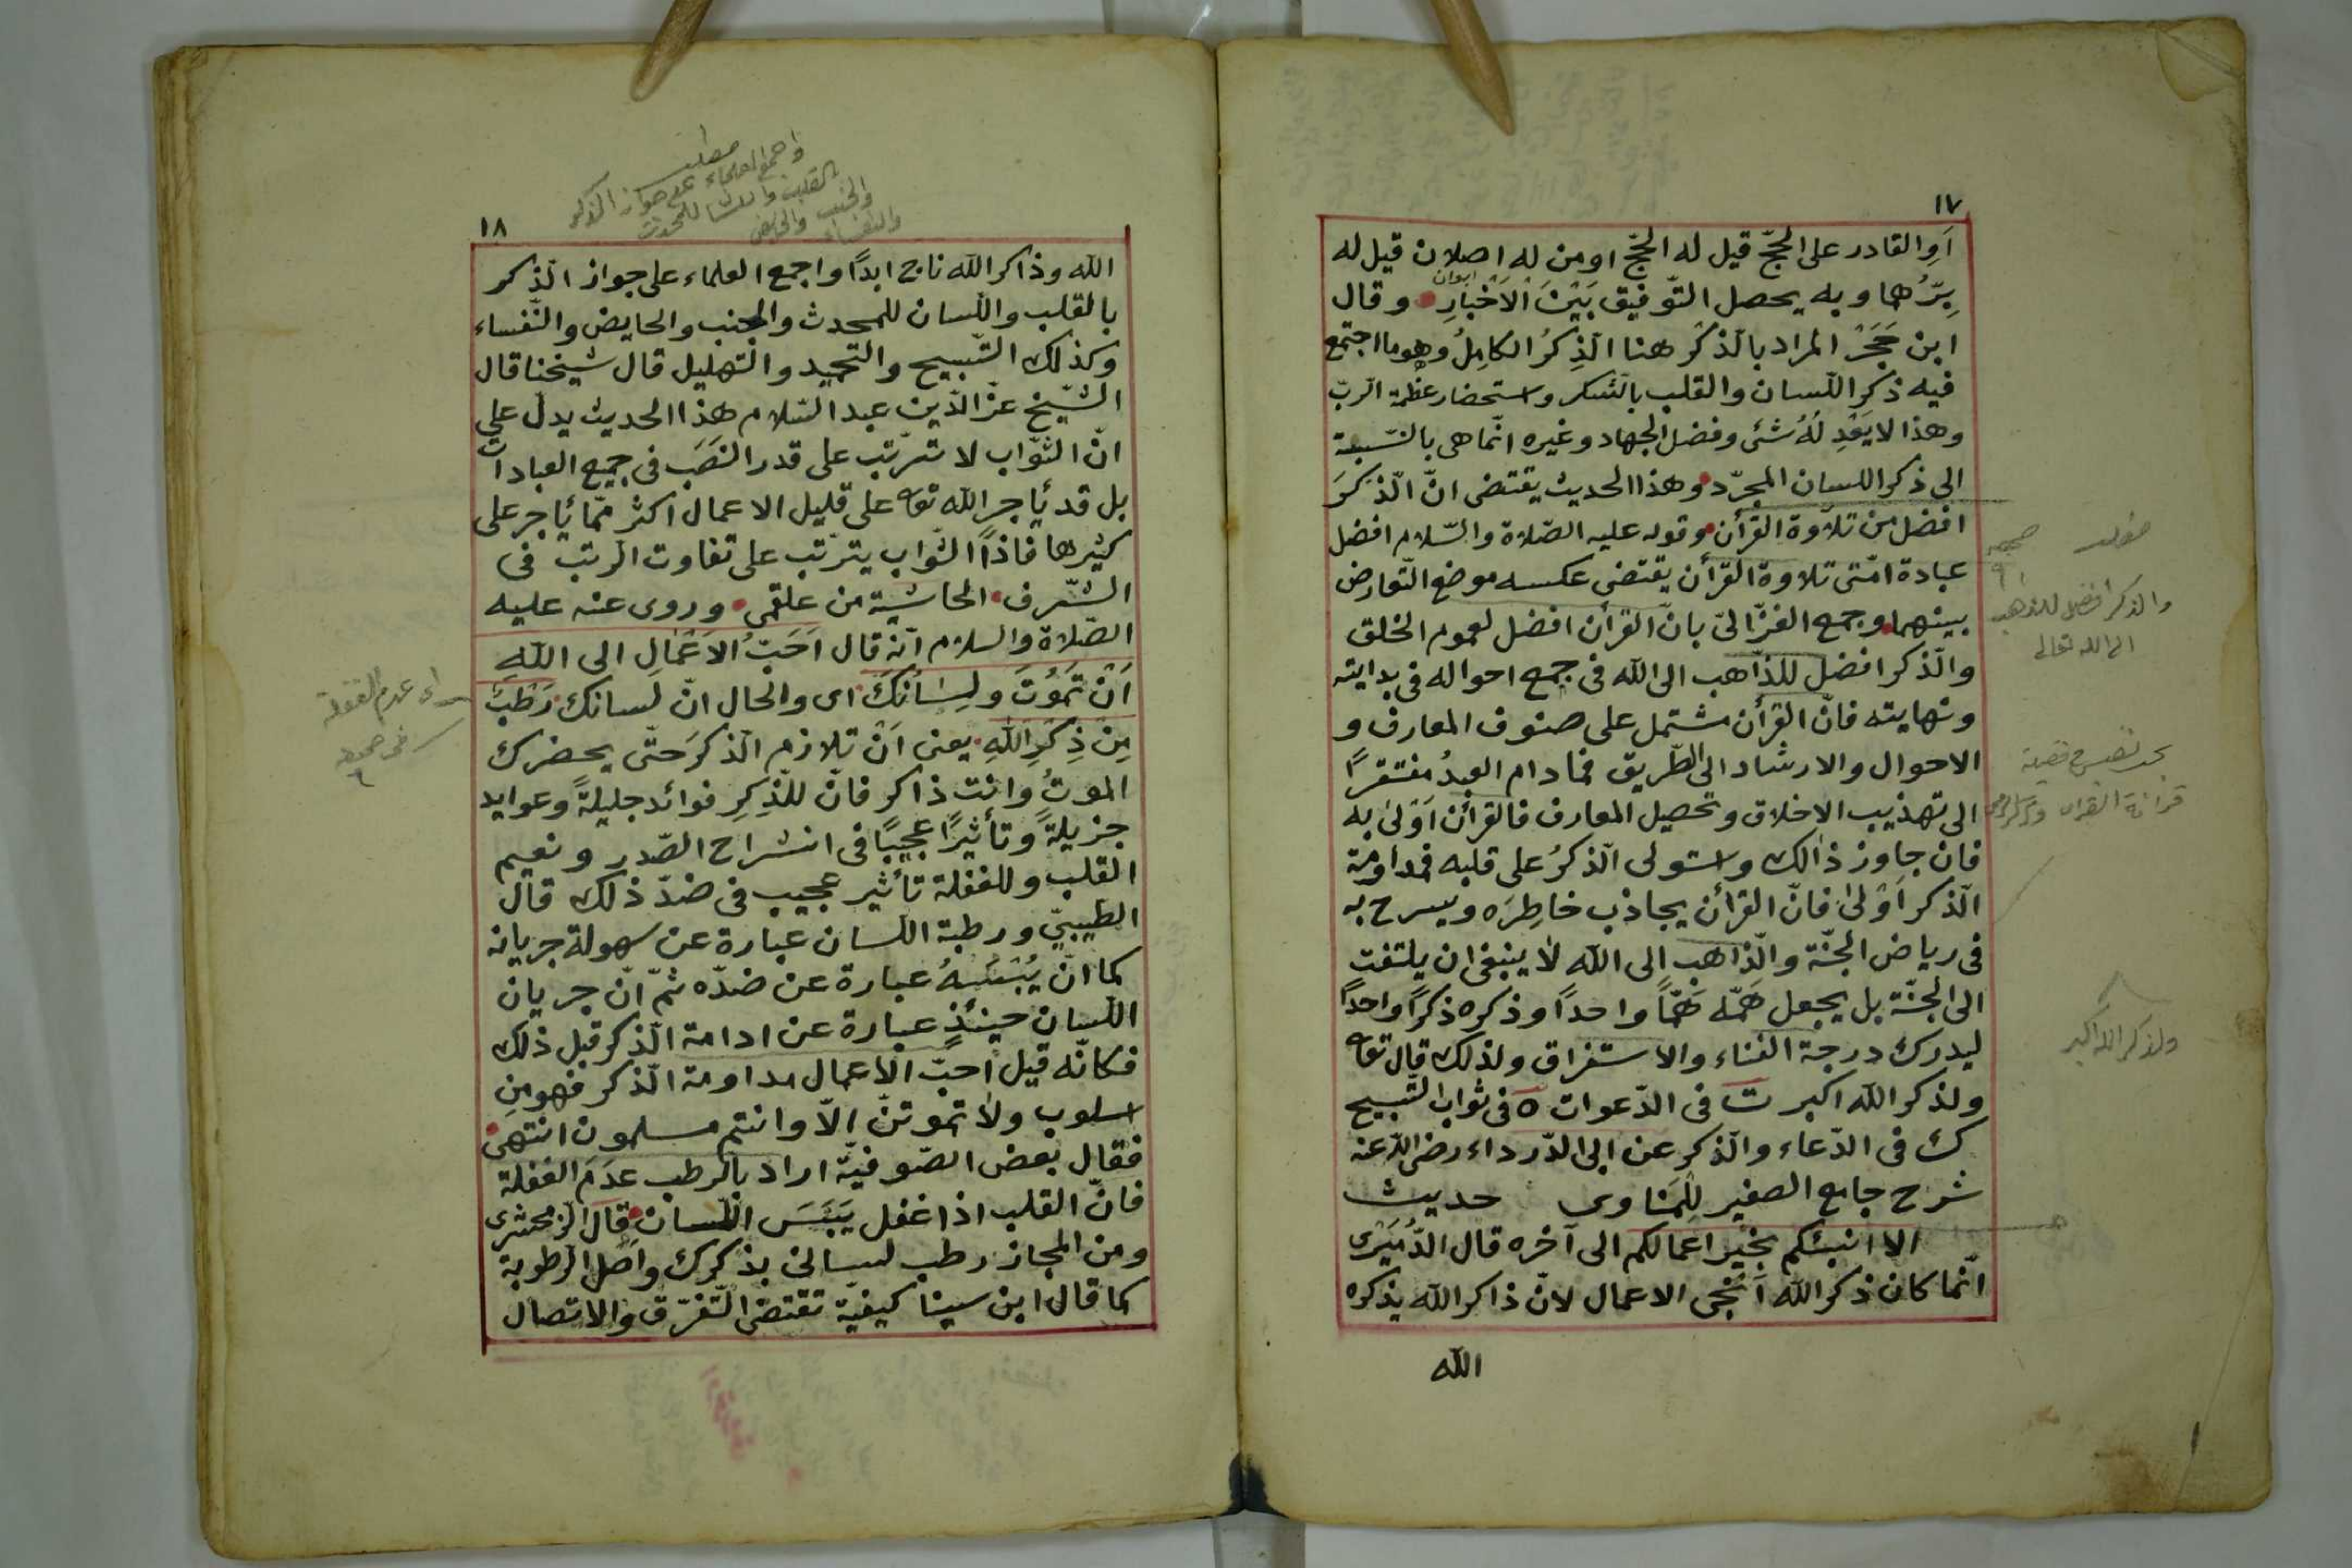 ١٧
اَوِ القادر على الحجّ قيل له الحجّ او من له اصلان قيل له
بِرّهما وبه يحصل التّوفيق بَيْنَ الاَخْبارِ وقال
ابن حَجَرْ المراد بالذّكر هنا الذِّكرُ الكامِلُ وهو ما اجتمع
فيه ذكر اللّسان والقلب بالشكر واستحضار عظمة الربّ
وهذا لا يَعْدِلُهُ شئ وفضل الجهاد وغيره انّما هى بالنّسبة
الى ذكر اللسان المجرّد وهذا الحديث يقتضى انّ الذّكرَ
افضل من تلاوة القرأن وقوله عليه الصّلاة والسّلام افضل
عبادة امّتى تلاوة القرأن يقتضى عكسه موضع التّعارض
بينهما وجمع الغزّالىّ بانّ القرأن افضل لعموم الخلق
والذّكر افضل للذّاهب الى الله فى جمع احواله فى بدايته
ونهايته فانّ القرأن مشتمل على صنوف المعارف و
الاحوال والارشاد الى الطّريق فما دام العبدُ مفتقرًا
الى تهذيب الاخلاق وتحصيل المعارف فالقرأن اَوْلىٰ به
فان جاوز ذٰالك واستولى الذّكرُ على قلبه فمداومة
الذّكر اَوْلىٰ فانّ القرأن يجاذب خاطِرَه ويسرح به
فى رياض الجنّة والذّاهب الى الله لا ينبغى ان يلتفت
الى الجنّة بل يجعل هَمّه هَمًّا واحدًا وذكره ذكرًا واحدًا
ليدرك درجة الفناء والاستغراق ولذلك قال تعا
ولذكر الله اكبر ت فى الدّعوات ه فى ثواب التّسبيح
ك فى الدّعاء والذكر عن ابى الدّرداء رضى الله عنه
شرح جامع الصغير للمَناوى حديث
الا انبئكم بخير اعمالكم الى آخره قال الدَّمَيْرى
انّما كان ذكر الله اَنْجى الاعمال لانّ ذاكر الله يذكره
الله
والذكر افضل للذاهب
الى الله تعالى
ولذكر الله اكبر
١٨
مطلب
واجمع العلماء على جواز الذكر
بالقلب واللسان للمحدث
والجنب والحايض
والنفساء
الله وذاكر الله ناج ابدًا واجمع العلماء على جواز الذّكر
بالقلب واللّسان للمحدث والجنب والحايض والنّفساء
وكذلك التّسبيح والتحميد والتهليل قال شيخنا قال
الشّيخ عزّ الدّين عبد السّلام هذا الحديث يدلّ على
انّ الثّواب لا تترّتب على قدر النَصَب فى جميع العبادات
بل قد يُأجر الله تعا على قليل الاعمال اكثر ممّا يُأجر على
كثيرها فاذًا الثّواب يترّتب على تفاوت الرتب فى
الشّرف الحاشية من علقمى وروى عنه عليه
الصّلاة والسلام انّه قال اَحَبُّ الاَعْمَالِ الى اللهِ
اَنْ تَمُوْتَ ولِسَانُكَ اى والحال انّ لسانك رَطْبٌ
مِنْ ذِكْرِ اللهِ يعنى اَنْ تلازم الذّكرَ حَتّى يحضرك
الموتُ وانت ذاكر فانّ للذِّكِرِ فوائد جليلةً وعوايد
جزيلةً وتأثيرًا عجيبًا فى انشراح الصّدر ونعيم
القلب وللغفلة تأثير عجيب فى ضدّ ذلك قال
الطيبيّ ورطبة اللّسان عبارة عن سهولة جريانه
كما انّ يُبْسَهُ عبارة عن ضدّه ثمّ انّ جريان
اللّسان حينئذٍ عبارة عن ادامة الذّكر قبل ذلك
فكانّه قيل احبّ الاعمال مداومة الذّكر فهو من
اسلوب ولا تموتنّ الاّ وانتم مسلمون انتهى
فقال بعض الصّوفيّة اراد بالرطب عدَمَ الغفلة
فانّ القلب اذا غفل يَبَسَ اللّسان قال الزّمخشرى
ومن المجاز رطب لسانى بذكرك واصل الرّطوبة
كما قال ابن سينا كيفيّة تقتضى التّفرّق والاتصال
عدم الغفلة